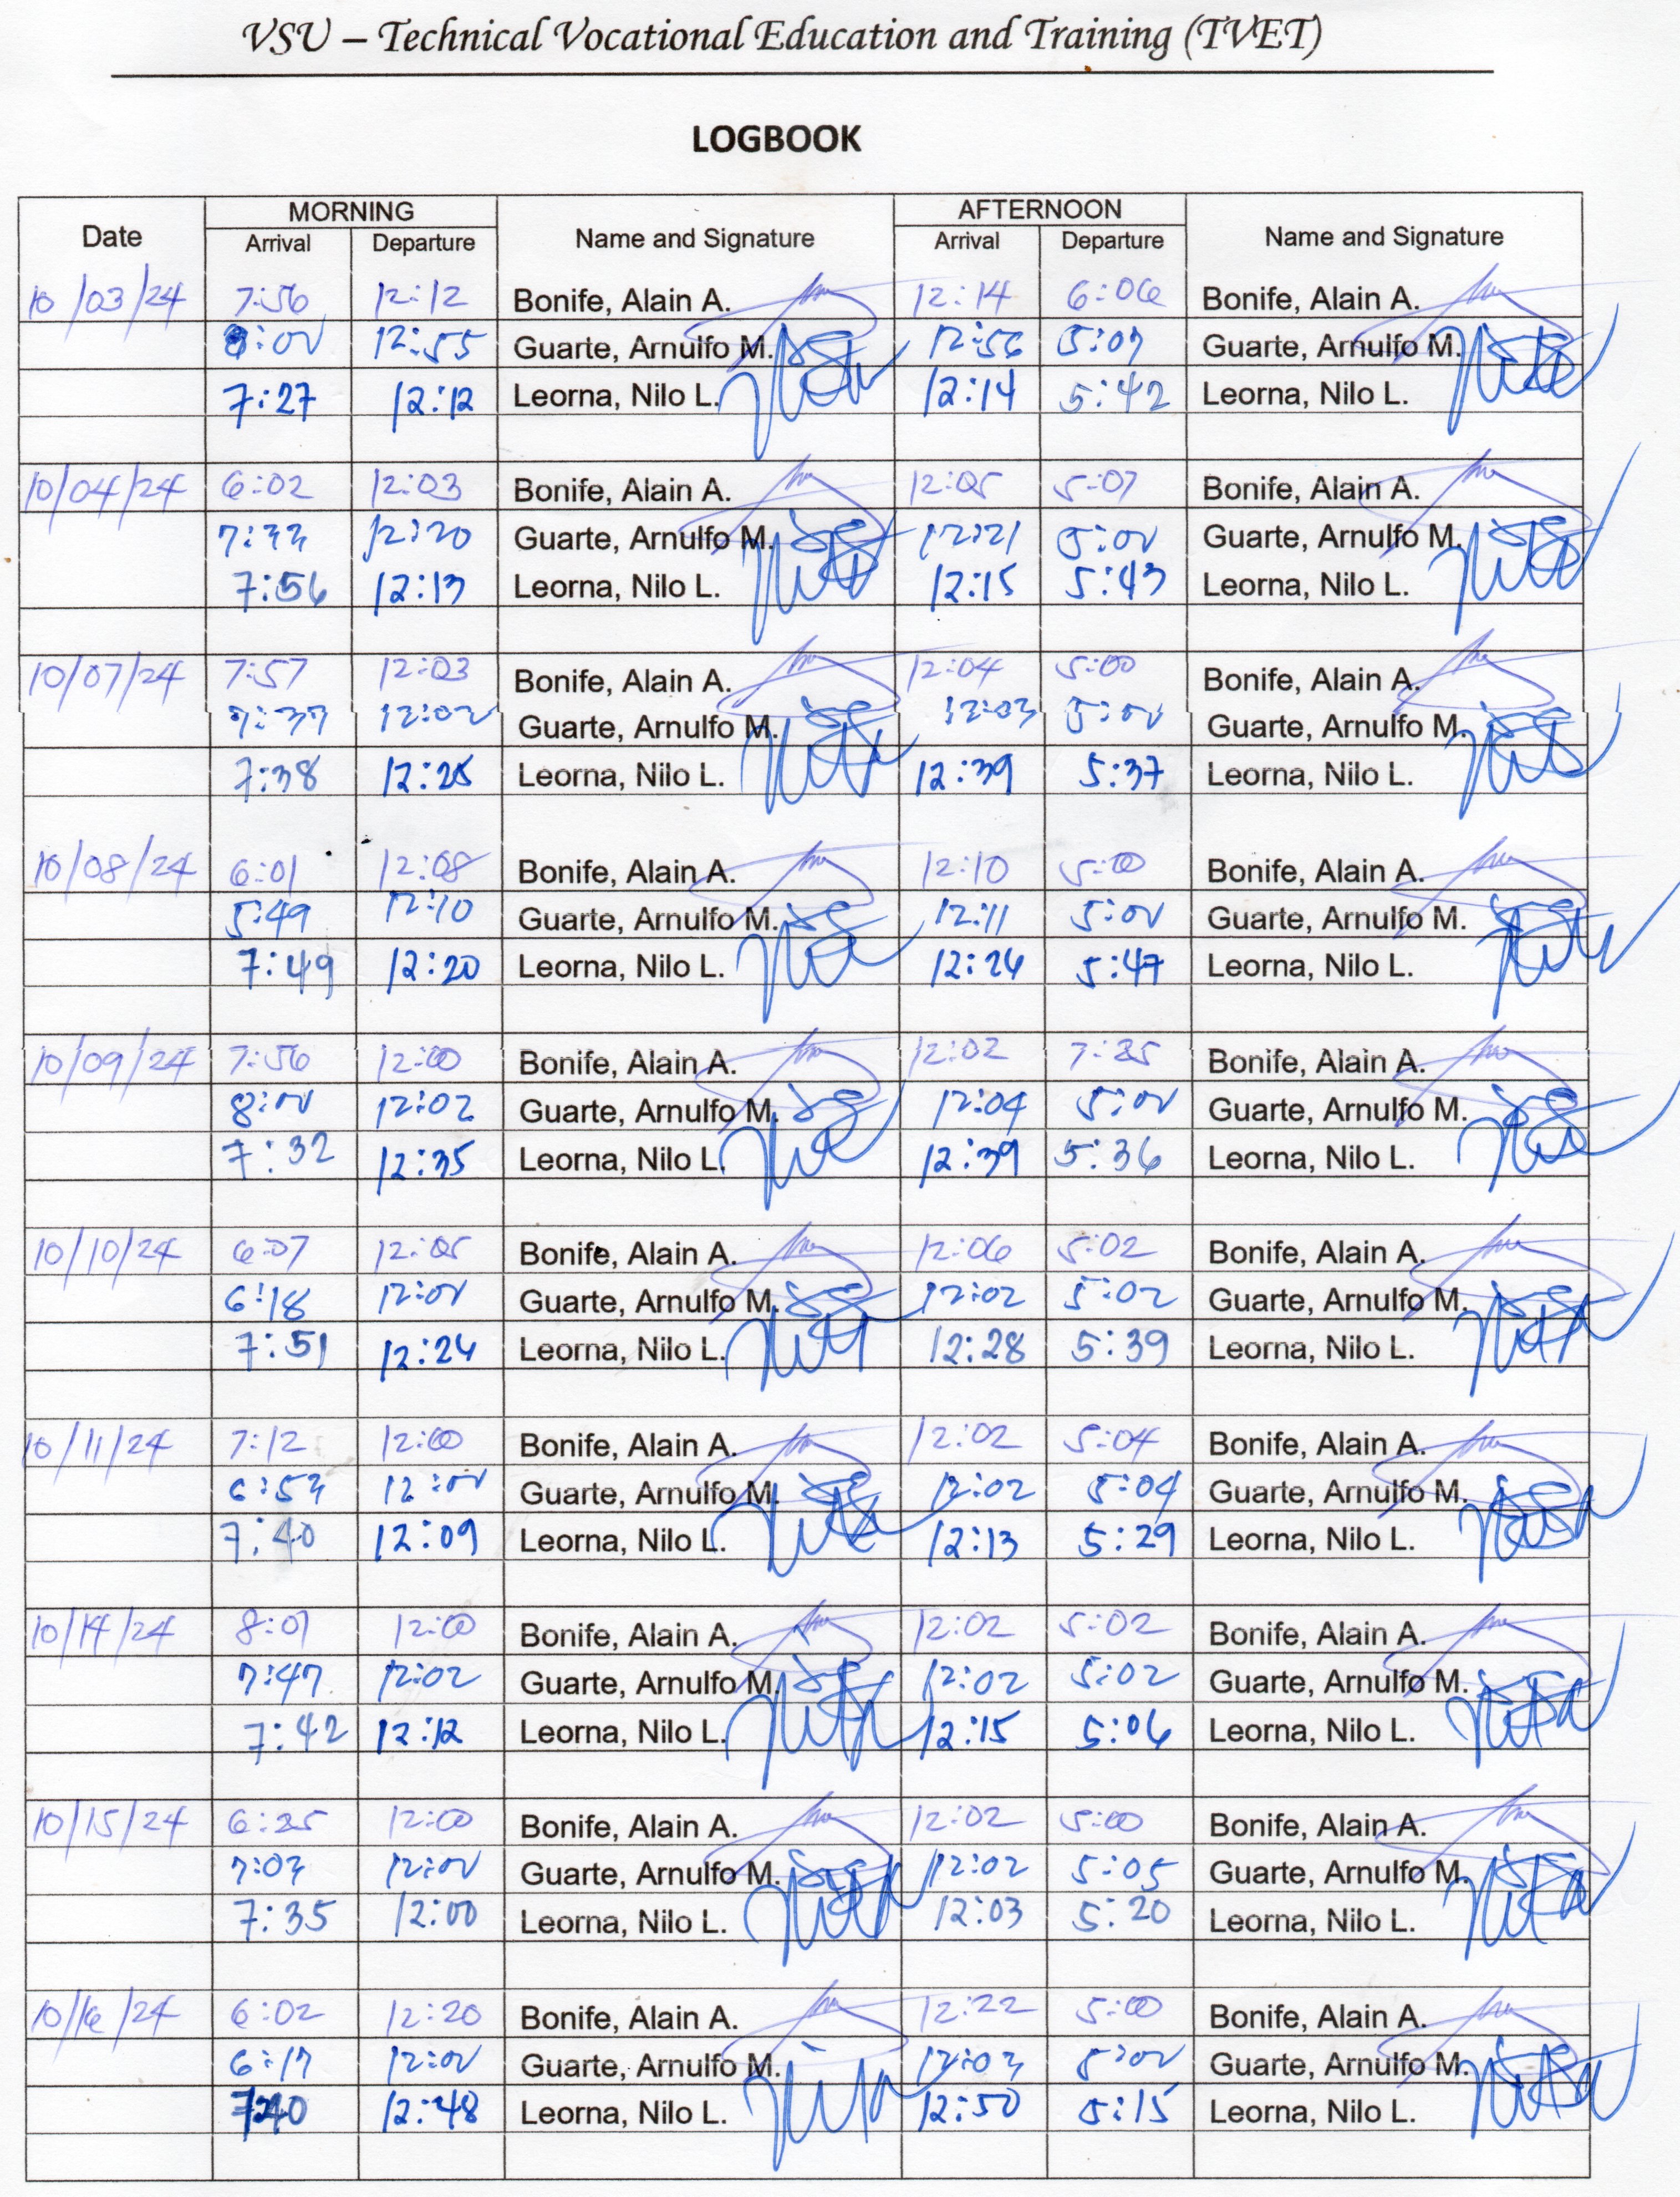 VSU – Technical Vocational Education and Training (TVET)
LOGBOOK
Date MORNING Name and Signature AFTERNOON Name and Signature
Arrival Departure Arrival Departure
10/03/24 7:56 12:12 Bonife, Alain A. 12:14 6:06 Bonife, Alain A.
8:00 12:55 Guarte, Arnulfo M. 12:56 5:07 Guarte, Arnulfo M.
7:27 12:12 Leorna, Nilo L. 12:14 5:42 Leorna, Nilo L.
10/04/24 6:02 12:03 Bonife, Alain A. 12:05 5:07 Bonife, Alain A.
7:33 12:20 Guarte, Arnulfo M. 12:21 5:00 Guarte, Arnulfo M.
7:56 12:13 Leorna, Nilo L. 12:15 5:43 Leorna, Nilo L.
10/07/24 7:57 12:03 Bonife, Alain A. 12:04 5:00 Bonife, Alain A.
7:37 12:02 Guarte, Arnulfo M. 12:03 5:00 Guarte, Arnulfo M.
7:38 12:25 Leorna, Nilo L. 12:39 5:37 Leorna, Nilo L.
10/08/24 6:01 12:08 Bonife, Alain A. 12:10 5:00 Bonife, Alain A.
5:49 12:10 Guarte, Arnulfo M. 12:11 5:00 Guarte, Arnulfo M.
7:49 12:20 Leorna, Nilo L. 12:26 5:47 Leorna, Nilo L.
10/09/24 7:56 12:00 Bonife, Alain A. 12:02 7:25 Bonife, Alain A.
8:00 12:02 Guarte, Arnulfo M. 12:04 5:00 Guarte, Arnulfo M.
7:32 12:35 Leorna, Nilo L. 12:39 5:36 Leorna, Nilo L.
10/10/24 6:07 12:05 Bonife, Alain A. 12:06 5:02 Bonife, Alain A.
6:18 12:00 Guarte, Arnulfo M. 12:02 5:02 Guarte, Arnulfo M.
7:51 12:26 Leorna, Nilo L. 12:28 5:39 Leorna, Nilo L.
10/11/24 7:12 12:00 Bonife, Alain A. 12:02 5:04 Bonife, Alain A.
6:53 12:00 Guarte, Arnulfo M. 12:02 5:04 Guarte, Arnulfo M.
7:40 12:09 Leorna, Nilo L. 12:13 5:29 Leorna, Nilo L.
10/14/24 8:01 12:00 Bonife, Alain A. 12:02 5:02 Bonife, Alain A.
7:47 12:02 Guarte, Arnulfo M. 12:02 5:02 Guarte, Arnulfo M.
7:42 12:12 Leorna, Nilo L. 12:15 5:06 Leorna, Nilo L.
10/15/24 6:25 12:00 Bonife, Alain A. 12:02 5:00 Bonife, Alain A.
7:03 12:00 Guarte, Arnulfo M. 12:02 5:05 Guarte, Arnulfo M.
7:35 12:00 Leorna, Nilo L. 12:03 5:20 Leorna, Nilo L.
10/16/24 6:02 12:20 Bonife, Alain A. 12:22 5:00 Bonife, Alain A.
6:17 12:00 Guarte, Arnulfo M. 12:03 5:00 Guarte, Arnulfo M.
7:40 12:48 Leorna, Nilo L. 12:50 5:15 Leorna, Nilo L.